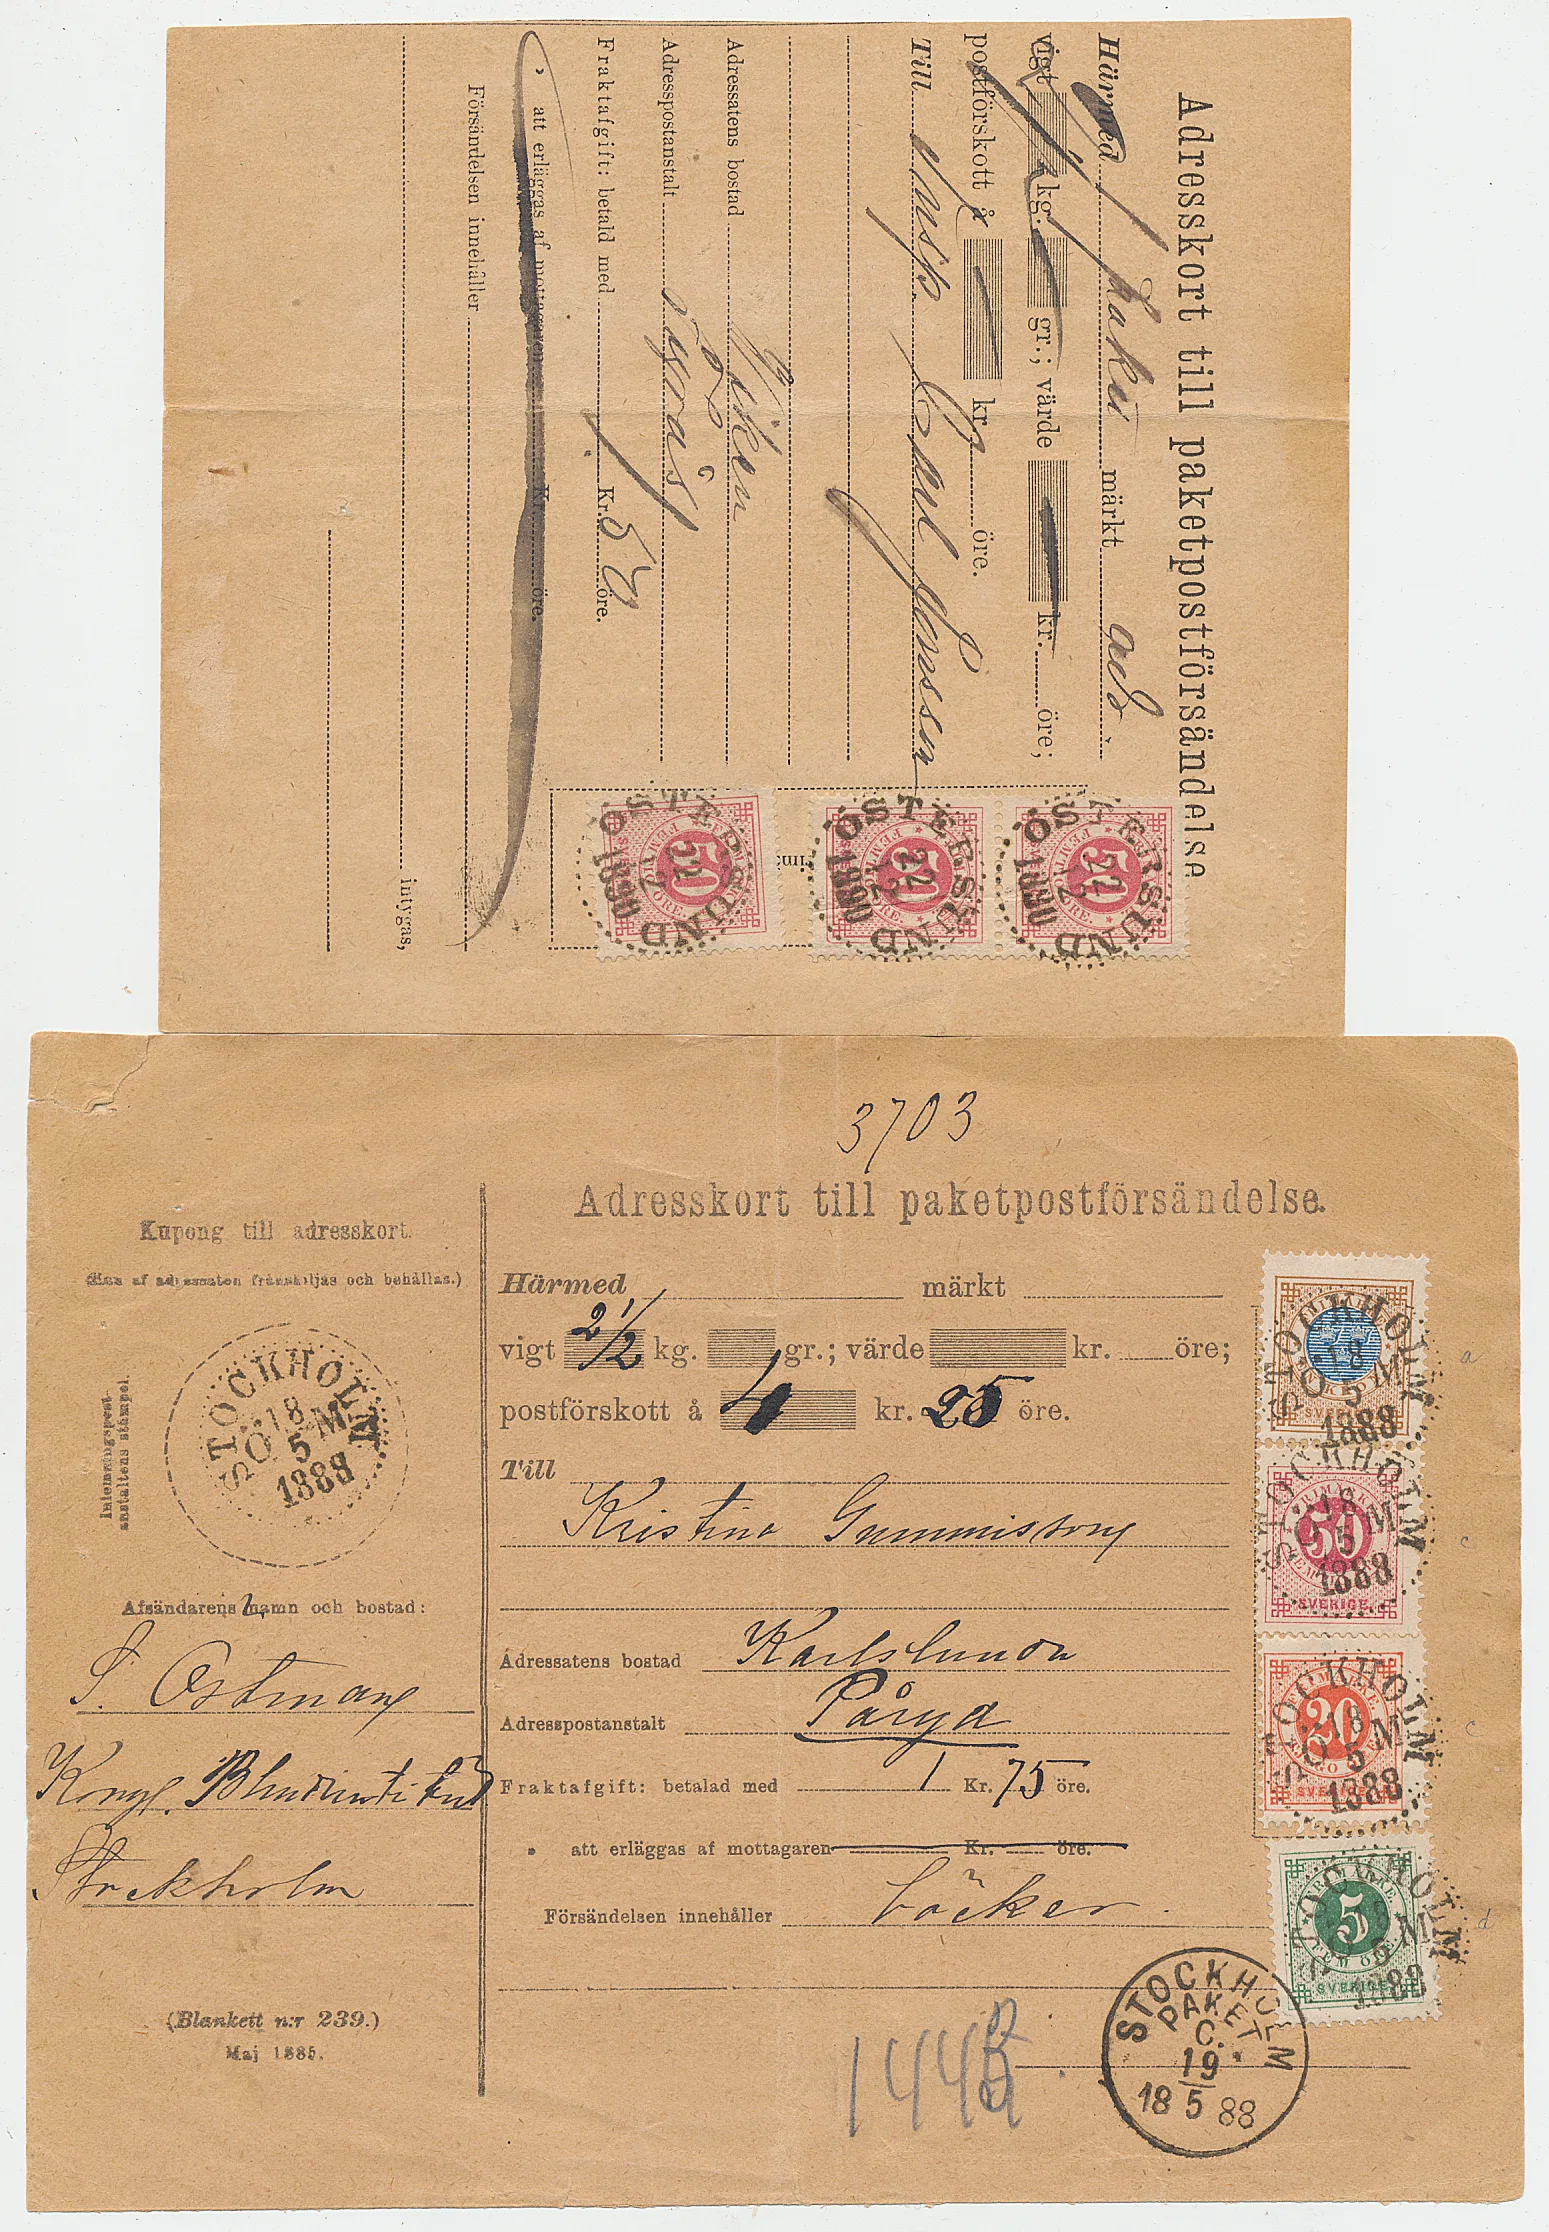 Adresskort till paketpostförsändelse
Härmed 1 paket märkt adr.
vigt kg. gr.; värde kr. öre;
postförskott å kr. öre.
Till Insp. Carl Jonsson
Adressatens bostad
Adresspostanstalt
Fraktafgift: betald med Kr. 50 öre.
" att erläggas af mottagaren Kr. öre.
Försändelsen innehåller
intygas,
ÖSTERSUND
22
12
1890
ÖSTERSUND
22
12
1890
ÖSTERSUND
22
12
1890
3703
Adresskort till paketpostförsändelse.
Kupong till adresskort.
(Kan af adressaten frånskiljas och behållas.)
Inlemningspost-
anstaltens stämpel.
STOCKHOLM
SÖ. 18 M
5
1888
Afsändarens namn och bostad:
S. Östman
Kongl.
Stockholm
(Blankett n:r 239.)
Maj 1885.
Härmed märkt
vigt 2 1/2 kg. gr.; värde kr. öre;
postförskott å 4 kr. 25 öre.
Till
Kristina
Adressatens bostad Karlslunda
Adresspostanstalt Påryd
Fraktafgift: betalad med 1 Kr. 75 öre.
" att erläggas af mottagaren Kr. öre.
Försändelsen innehåller böcker.
STOCKHOLM
SÖ. 18 M
5
1888
STOCKHOLM
SÖ. 18 M
5
1888
50
SVERIGE
STOCKHOLM
SÖ. 18 M
5
1888
20
SVERIGE
STOCKHOLM
5
SVERIGE
a
c
c
d
STOCKHOLM
PAKET
C.
19
18 5 88